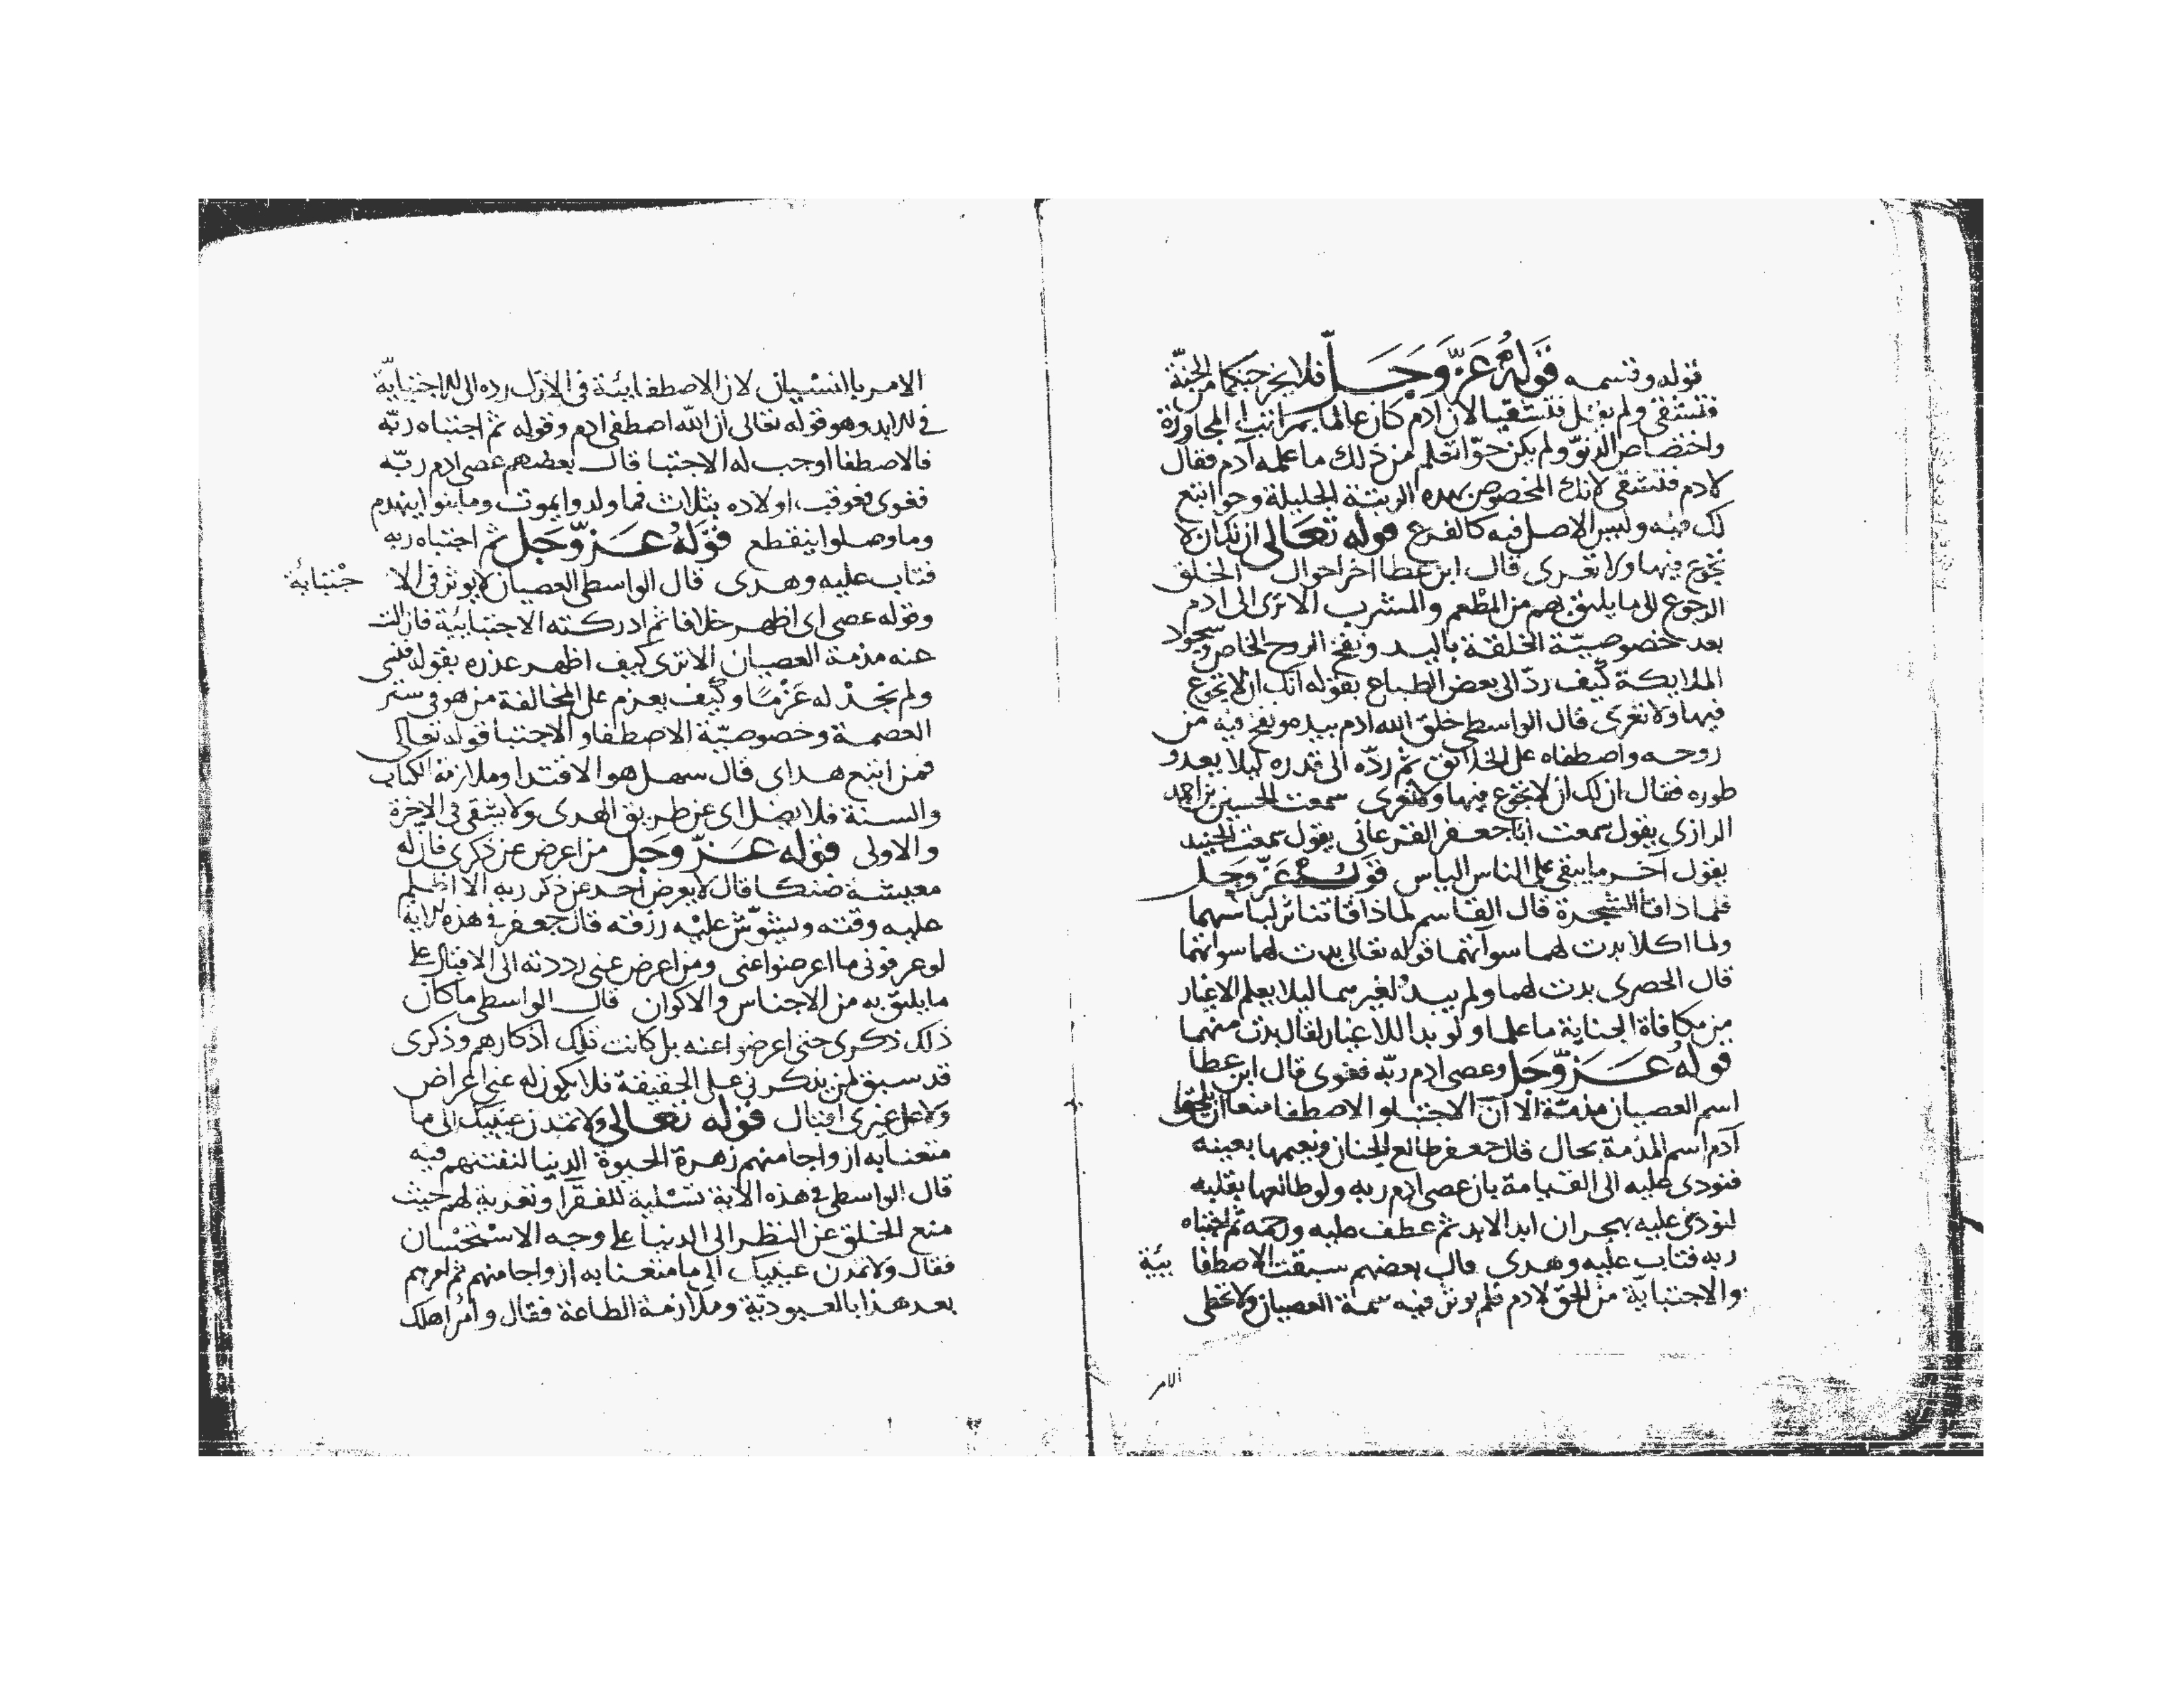 قوله وقسمه قوله عز وجل فلا يخرجنكما من الجنة
فتشقى ولم يقل فتشقيا لان ادم كان عالما بمراتب المجاورة
واختصاص الدنو ولم يكن حوا تعلم من ذلك ما علمه آدم فقال
لادم فتشقى لانك المخصوص بهذه الرتبة الجليلة وحوا تتبع
لك فيه وليس الاصل فيه كالفرع قوله تعالى ان لك ان لا
تجوع فيها ولا تعرى قال ابن عطا اخر احوال الخلق
الرجوع الى ما يليق بهم من المطعم والمشرب الا ترى الى ادم
بعد خصوصية الخلقة باليد ونفخ الروح الخاص وسجود
الملايكة كيف رد الى بعض الطباع بقوله ان لك ان لا تجوع
فيها ولا تعرى قال الواسطي خلق الله ادم بيده ونفخ فيه من
روحه واصطفاه على الخلائق ثم رده الى قدره كيلا يعدو
طوره فقال ان لك ان لا تجوع فيها ولا تعرى سمعت الحسين بن احمد
الرازي يقول سمعت ابا جعفر الفرغاني يقول سمعت الجنيد
يقول آخر ما يبقى على الناس الياس قوله عز وجل
فلما ذاقا الشجرة قال القاسم لما ذاقا تناثر لباسهما
ولما اكلا بدت لهما سوآتهما قوله تعالى بدت لهما سوآتهما
قال الحصري بدت لهما ولم يبد لغيرهما ليلا يعلم الاغيار
من مكافاة الجناية ما علما ولو بدا للاغيار لقال بدت منهما
قوله عز وجل وعصى ادم ربه فغوى قال ابن عطا
اسم العصيان مذمة الا ان الاجتبا والاصطفا منعا ان يلحق
آدم اسم المذمة بحال قال جعفر طالع الجنان ونعيمها بعينه
فنودي عليه الى القيامة بان عصى ادم ربه ولو طالعها بقلبه
لنودي عليه بهجران ابد الابد ثم عطف عليه ورحمه ثم اجتباه
ربه فتاب عليه وهدى قال بعضهم سبقت الاصطفا بية
والاجتبابية من الحق لادم فلم يوثر فيه سمة العصيان ولا تخطى
الامر
الامر بالنسيان لان الاصطفايية في الازل رده الى الاجتبايية
في الابد وهو قوله تعالى ان الله اصطفى ادم وقوله ثم اجتباه ربه
فالاصطفا اوجب له الاجتبا قال بعضهم عصى ادم ربه
فغوى فعوقب اولاده بثلاث فما ولدوا يموت وما بنوا ينهدم
وما وصلوا ينقطع قوله عز وجل ثم اجتباه ربه
فتاب عليه وهدى قال الواسطي العصيان لا يوثر في الا جتبابية
وقوله عصى اى اظهر خلافا ثم ادركته الاجتبابية فازالت
عنه مذمة العصيان الا ترى كيف اظهر عذره بقوله فنسي
ولم نجد له عزما وكيف يعزم على المخالفة من هو في ستر
العصمة وخصوصية الاصطفا والاجتبا قوله تعالى
فمن اتبع هداى قال سهل هو الاقتدا وملازمة الكتاب
والسنة فلا يضل اى عن طريق الهدى ولا يشقى في الاخرة
والاولى قوله عز وجل من اعرض عن ذكرى فان له
معيشة ضنكا قال لا يعرض احد عن ذكر ربه الا اظلم
عليه وقته ويشوش عليه رزقه قال جعفر في هذه الاية
لو عرفوني ما اعرضوا عني ومن اعرض عني رددته الى الاقبال على
ما يليق به من الاجناس والاكوان قال الواسطي ما كان
ذلك ذكرى حتى اعرضوا عنه بل كانت تلك اذكارهم وذكرى
قد سبق لمن يذكرني على الحقيقة فلا يكون له عني اعراض
ولا على غيرى اقبال قوله تعالى ولا تمدن عينيك الى ما
متعنا به ازواجا منهم زهرة الحيوة الدنيا لنفتنهم فيه
قال الواسطي في هذه الاية تسلية للفقرا وتعزية لهم حيث
منع الخلق عن النظر الى الدنيا على وجه الاستحسان
فقال ولا تمدن عينيك الى ما متعنا به ازواجا منهم ثم امرهم
بعد هذا بالعبودية وملازمة الطاعة فقال وامر اهلك